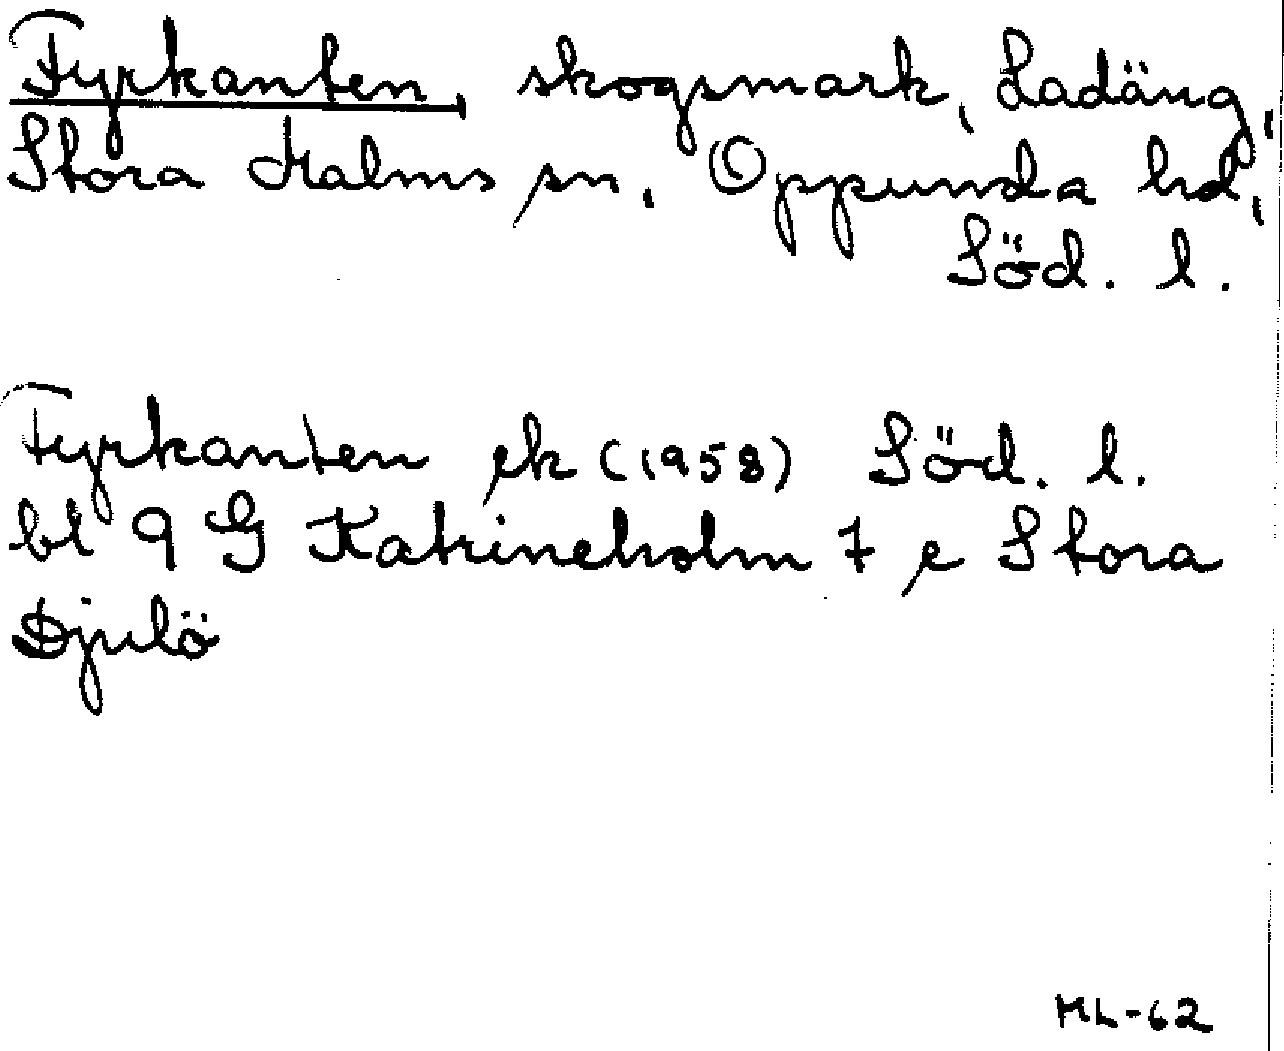 Fyrkanten, skogsmark, Ladäng,
Stora Malms sn, Oppunda hd,
Söd. l.
Fyrkanten ek (1958) Söd. l.
bl 9 G Katrineholm 7 e Stora
Djulö
ML-62